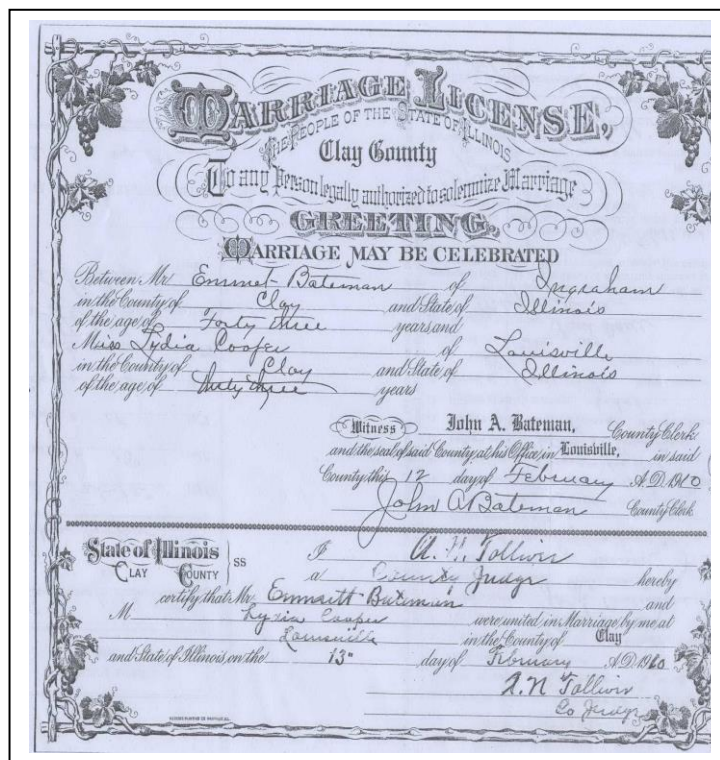 MARRIAGE LICENSE,
THE PEOPLE OF THE STATE OF ILLINOIS
Clay County
To any Person legally authorized to solemnize Marriage
GREETING,
MARRIAGE MAY BE CELEBRATED
Between Mr Emmet Bateman of Ingraham
in the County of Clay and State of Illinois
of the age of Forty three years and
Miss Lydia Cooper of Louisville
in the County of Clay and State of Illinois
of the age of thirty three years
Witness John A. Bateman, County Clerk
and the seal of said County, at his Office in Louisville, in said
County this 12 day of February A.D. 1910
John A Bateman County Clerk
State of Illinois
CLAY COUNTY SS
I A. N. Tolliver
a County Judge hereby
certify that Mr. Emmitt Bateman and
M Lyzia Cooper were united in Marriage by me at
Louisville in the County of Clay
and State of Illinois, on the 13 day of February A.D. 1910
A. N Tolliver
Co Judge